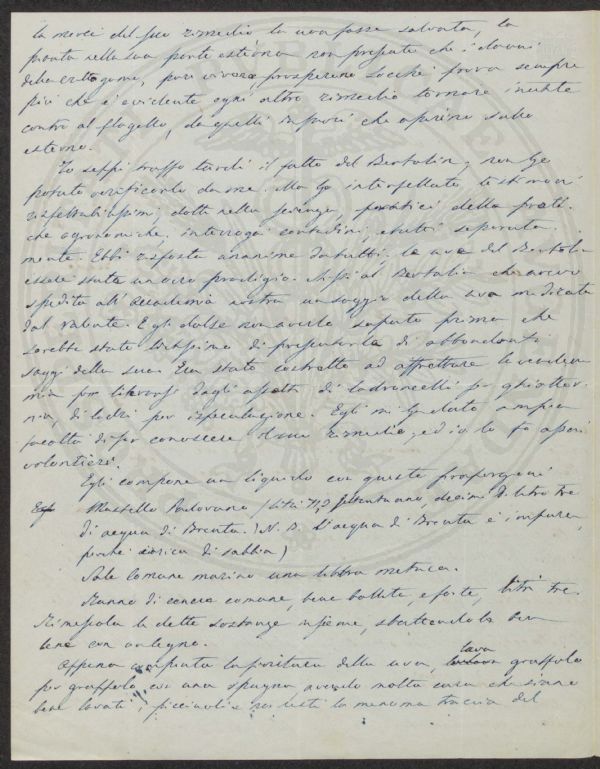 la mercè del suo rimedio, la uva fosse salvata, la
pianta nella sua parte esterna non presenta che i danni
della crittogama, pure vivere prosperare sicchè prova sempre
più che è evidente ogni altro rimedio tornare inutile
contro al flagello, da quelli in fuori che aprino sullo
esterno.
Io seppi troppo tardi il fatto del Bertolin, non ho
potuto verificarlo da me. Ma ho interpellato testimoni
rispettabilissimi, dotti nella scienza, pratici della prati-
che agronomiche, interrogai contadini, separata-
mente. Ebbi risposta unanime da tutti, la uva del Bertolin
essere stata un vero prodigio. Dissi al Bertolin che avevo
spedito all'Accademia nostra un saggio della uva medicata
dal Valente. Egli dolse non averlo saputo prima che
sarebbe stato lietissimo di presentarla di abbondanti
saggi della sua. Era stato costretto ad affrettare la vendem
mia per liberarsi dagli assalti di ladroncelli per ghiotto-
nia, di ladri per ispeculazione. Egli mi ha dato ampia
facoltà di far conoscere il suo rimedio, ed io lo fo assai
volontieri.
Egli compone un liquido con queste proporzioni
Mastello Padovano (litri 71,3 settantuno, decimi di litro tre
di acqua di Brenta. (N. B. L'acqua di Brenta è impura,
perchè carica di sabbia)
Sale comune marino una libbra metrica.
Ranno di cenere comune, bene bollito, e forte, litri tre.
Rimescola le dette sostanze insieme, sbattendole ben
bene con un legno.
Appena compiuta la fioritura della uva, lava grappolo
per grappolo con una spugna, avendo molta cura che siano
bene lavati, picciuoli e resti la menoma traccia del